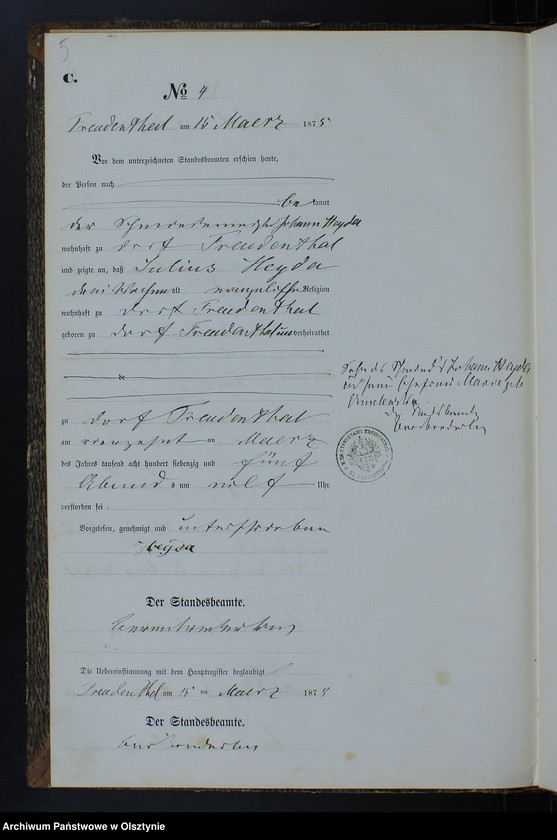 5
C.
No 4
Freudenthal am 15 Maerz 1875
Vor dem unterzeichneten Standesbeamten erschien heute,
der Person nach
be kannt
der Schmiedemeister Johann Heyda
wohnhaft zu dorf Freudenthal
und zeigte an, daß Julius Heyda
drei Wochen alt evangelischer Religion
wohnhaft zu dorf Freudenthal
geboren zu dorf Freudenthal unverheirathet
zu dorf Freudenthal
am vierzehnt en Maerz
des Jahres tausend acht hundert siebenzig und fünf
Abends um elf Uhr
verstorben sei.
Vorgelesen, genehmigt und unterschrieben
Heyda
Sohn des Schmied's Johann Heyda
und seiner Ehefrau Marie geb
Der Standesbeamte
Der Standesbeamte.
Die Uebereinstimmung mit dem Hauptregister beglaubigt
Freudenthal am 15 ten Maerz 1875
Der Standesbeamte.
Archiwum Państwowe w Olsztynie